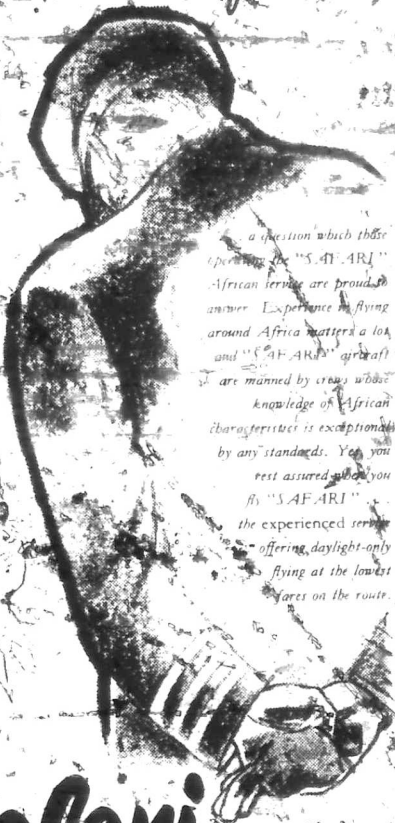 a question which those
operating the "S.AF.ARI"
African service are proud to
answer. Experience in flying
around Africa matters a lot
and "S.AF.ARI" aircraft
are manned by crews whose
knowledge of African
characteristics is exceptional
by any standards. Yes, you
rest assured when you
fly "S.AF.ARI" . .
the experienced service
offering daylight-only
flying at the lowest
fares on the route.